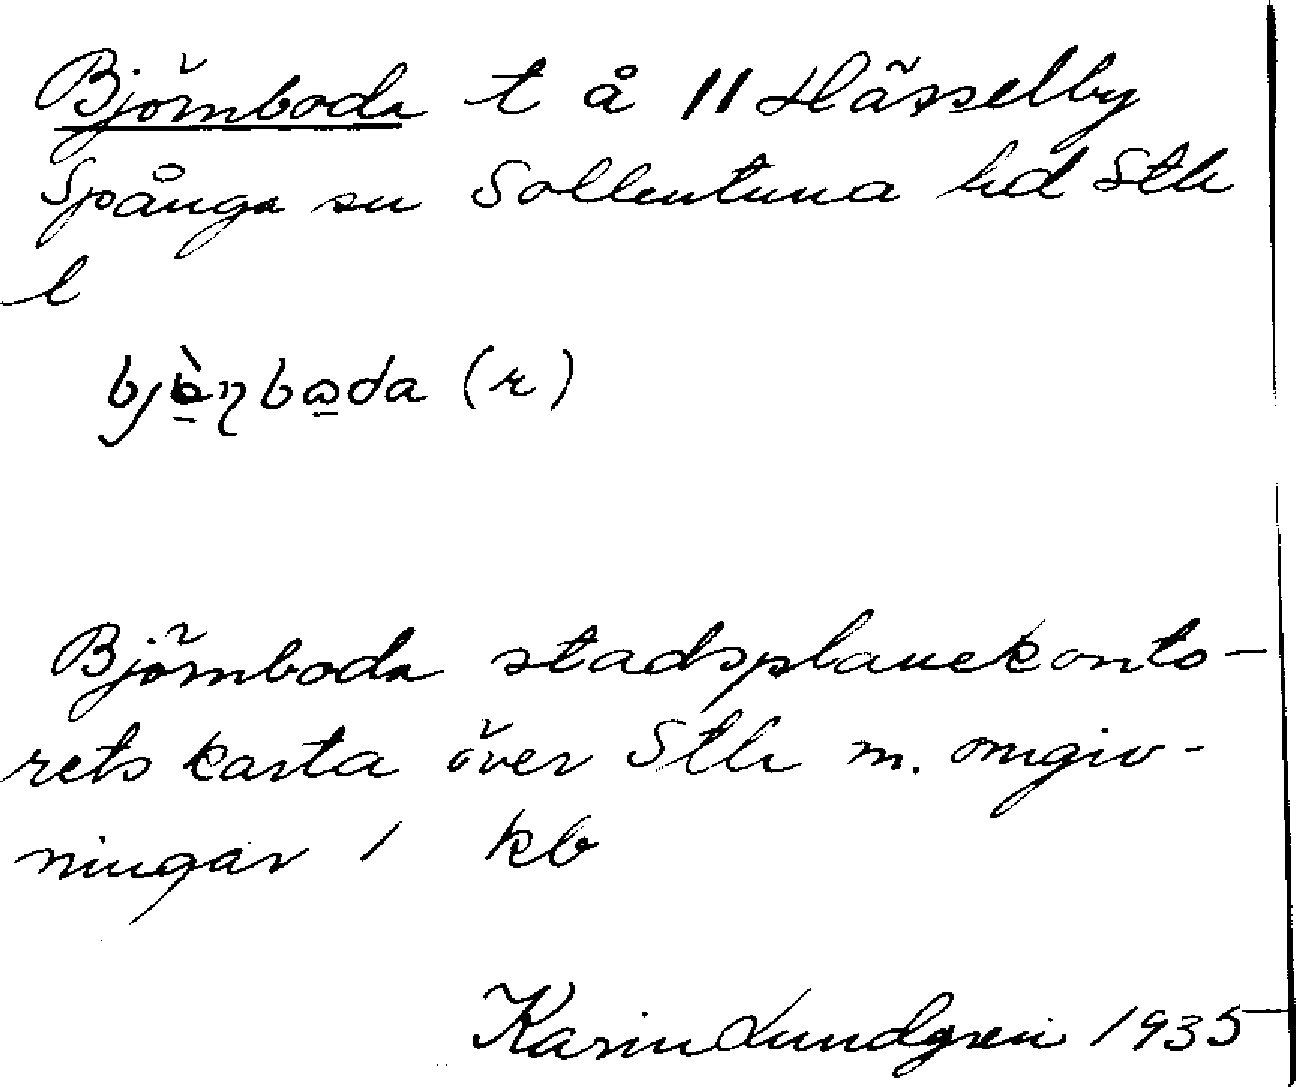 Björnboda t å 11 Hässelby
Spånga sn Sollentuna hd Sthlm
l
(r)
Björnboda stadsplanekonto-
rets karta över Sthlm m. omgiv-
ningar 1 kb
Karin Lundgren 1935